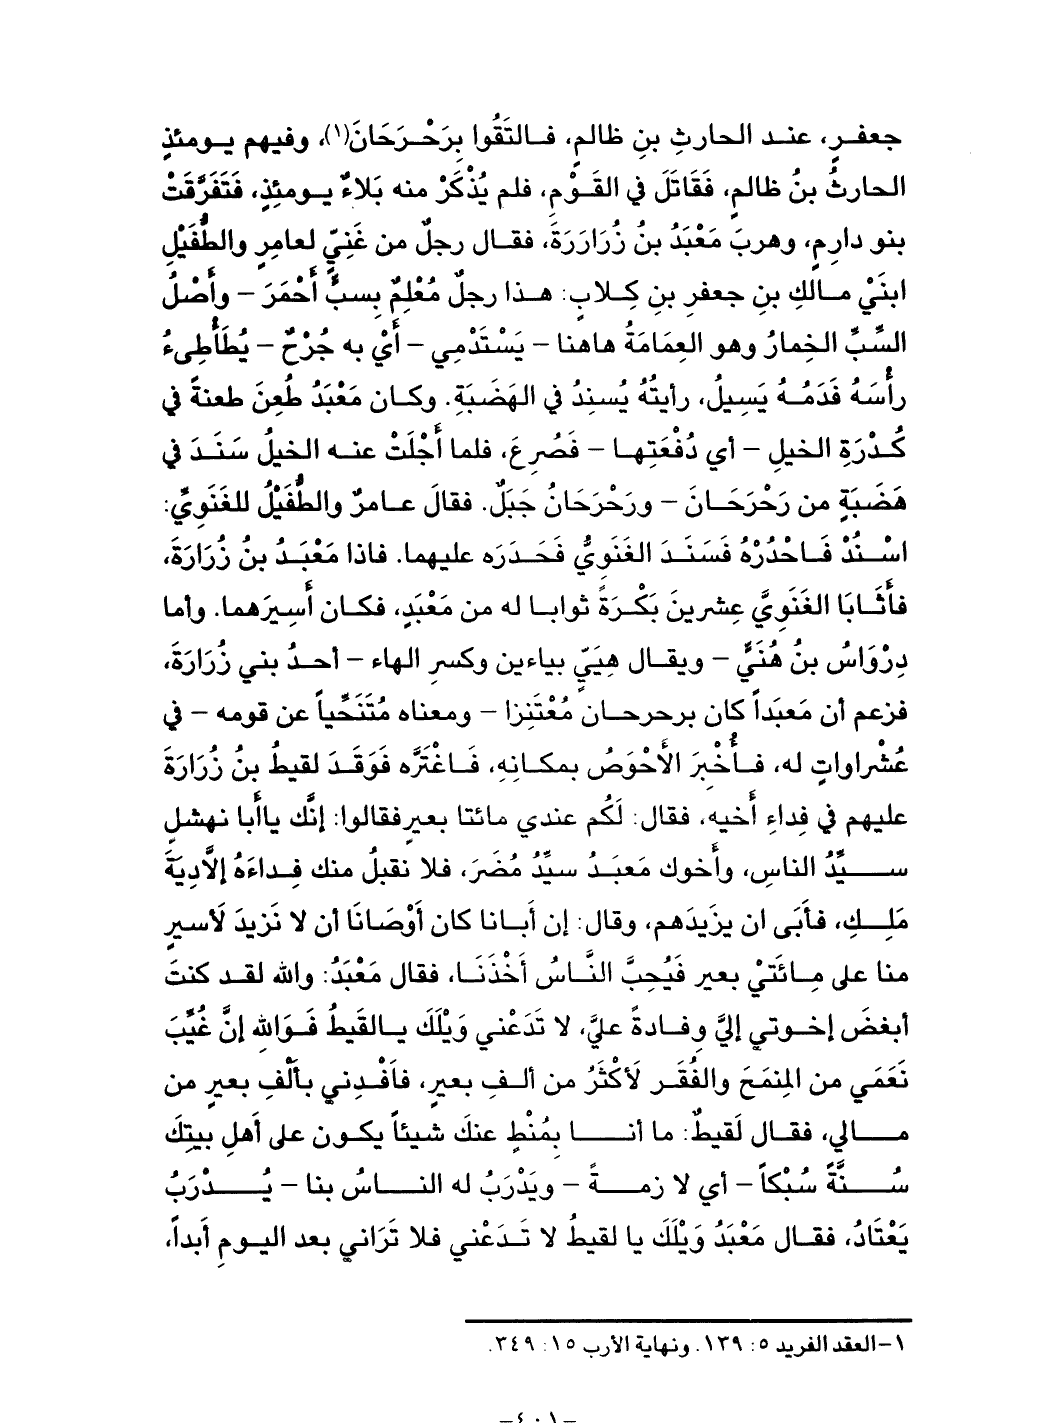 جعفرٍ، عند الحارثِ بنِ ظالمٍ، فالتَقُوا بِرَحْرَحَانَ(١)، وفيهم يومئذٍ
الحارثُ بنُ ظالمٍ، فَقَاتَلَ في القَوْمِ، فلم يُذْكَرْ منه بَلاءٌ يومئِذٍ، فَتَفَرَّقَتْ
بنو دارِمٍ، وهربَ مَعْبَدُ بنُ زُرَارَرَةَ، فقال رجلٌ من غَنِيٍّ لعامرٍ والطُّفَيْلِ
ابنَيْ مالكِ بنِ جعفرِ بنِ كِلابٍ: هذا رجلٌ مُعْلِمٌ بِسبٍّ أَحْمَرَ – وأَصْلُ
السِّبِّ الخِمارُ وهو العِمَامَةُ هاهنا – يَسْتَدْمِي – أَيْ به جُرْحٌ – يُطَأْطِىءُ
رأْسَهُ فَدَمُهُ يَسِيلُ، رأيتُهُ يُسنِدُ في الهَضَبَةِ. وكان مَعْبَدُ طُعِنَ طعنةً في
كُدْرَةِ الخيلِ – أي دُفْعَتِها – فَصُرِعَ، فلما أَجْلَتْ عنه الخيلُ سَنَدَ في
هَضَبَةٍ من رَحْرَحَانَ – ورَحْرَحَانُ جَبَلٌ. فقالَ عامرٌ والطُّفَيْلُ للغَنَوِيِّ:
اسْنُدْ فَاحْدُرْهُ فَسَنَدَ الغَنَوِيُّ فَحَدَرَه عليهما. فاذا مَعْبَدُ بنُ زُرَارَةَ،
فأَثَابَا الغَنَوِيَّ عِشرينَ بَكْرَةً ثوابا له من مَعْبَدٍ، فكان أَسِيرَهما. وأما
دِرْوَاسُ بنُ هُنَيٍّ – ويقال هِيَيّ بياءين وكسرِ الهاء – أحدُ بني زُرَارَةَ،
فزعم أن مَعبَداً كان برحرحان مُعْتَنِزا – ومعناه مُتَنَحِّياً عن قومه – في
عُشْراواتٍ له، فأُخْبِرَ الأَحْوَصُ بمكانِهِ، فَاغْتَرَّه فَوَفَدَ لقيطُ بنُ زُرَارَةَ
عليهم في فِداءِ أَخيه، فقال: لَكُم عندي مائتا بعيرٍ فقالوا: إنَّك ياأَبا نهشلٍ
سيِّدُ الناسِ، وأَخوك مَعبَدُ سيِّدُ مُضَرَ، فلا نقبلُ منك فِداءَهُ إلاَّدِيَةَ
مَلِكِ، فأَبَى ان يزيدَهم، وقال: إن أَبانا كان أَوْصَانَا أن لا نَزيدَ لَأسيرٍ
منا على مِائَتَيْ بعير فَيُحِبَّ النَّاسُ أَخْذَنَا، فقال مَعْبَدُ: والله لقد كنتَ
أبغضَ إخوتي إليَّ وفادةً عليَّ، لا تَدَعْني وَيْلَكَ يا لقَيطُ فَوَاللهِ إنَّ غُيَّبَ
نَعَمَي من المِنَحِ والفُقَرِ لَأكْثَرُ من ألفِ بعيرٍ، فافْدِني بأَلْفِ بعيرٍ من
مالي، فقال لَقيطٌ: ما أنا بمُنْطٍ عنكَ شيئاً يكون على أهلِ بيتِكَ
سُنَّةً سُبْكاً – أي لا زمةً – ويَدْرَبُ له الناسُ بنا – يُدْرَبُ
يَعْتَادُ، فقال مَعْبَدُ وَيْلَكَ يا لقيطُ لا تَدَعْني فلا تَرَاني بعد اليومِ أَبداً،
١–العقد الفريد ٥: ١٣٩. ونهاية الأرب ١٥: ٣٤٩.
–٤٠١–